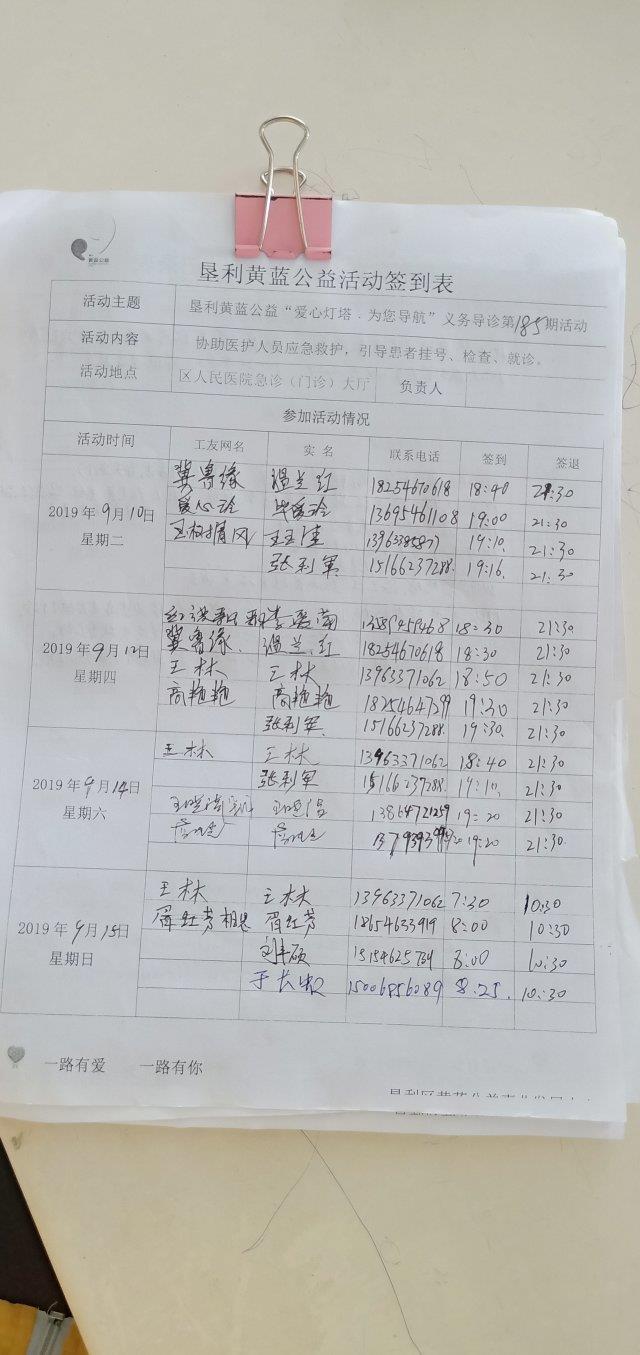 黄蓝公益
垦利黄蓝公益活动签到表
活动主题 垦利黄蓝公益“爱心灯塔．为您导航”义务导诊第185期活动
活动内容 协助医护人员应急救护，引导患者挂号、检查、就诊。
活动地点 区人民医院急诊（门诊）大厅 负责人
参加活动情况
活动时间 工友网名 实 名 联系电话 签到 签退
冀鲁缘 温兰红 18254670618 18:40 21:30
2019年9月10日 爱心玲 13695461108 19:00 21:30
星期二 玉树清风 19:10 21:30
张利军 15166237288 19:16 21:30
18:30 21:30
2019年9月12日 冀鲁缘 温兰红 18254670618 18:30 21:30
星期四 王林 王林 13963371062 18:50 21:30
高艳艳 高艳艳 18254647299 19:30 21:30
张利军 15166237288 19:30 21:30
王林 王林 13963371062 18:40 21:30
2019年9月14日 张利军 15166237288 19:10 21:30
星期六 13864721259 19:20 21:30
19:20 21:30
王林 王林 13963371062 7:30 10:30
2019年9月15日 18654633919 8:00 10:30
星期日 8:00 10:30
15006856089 8:25 10:30
一路有爱 一路有你